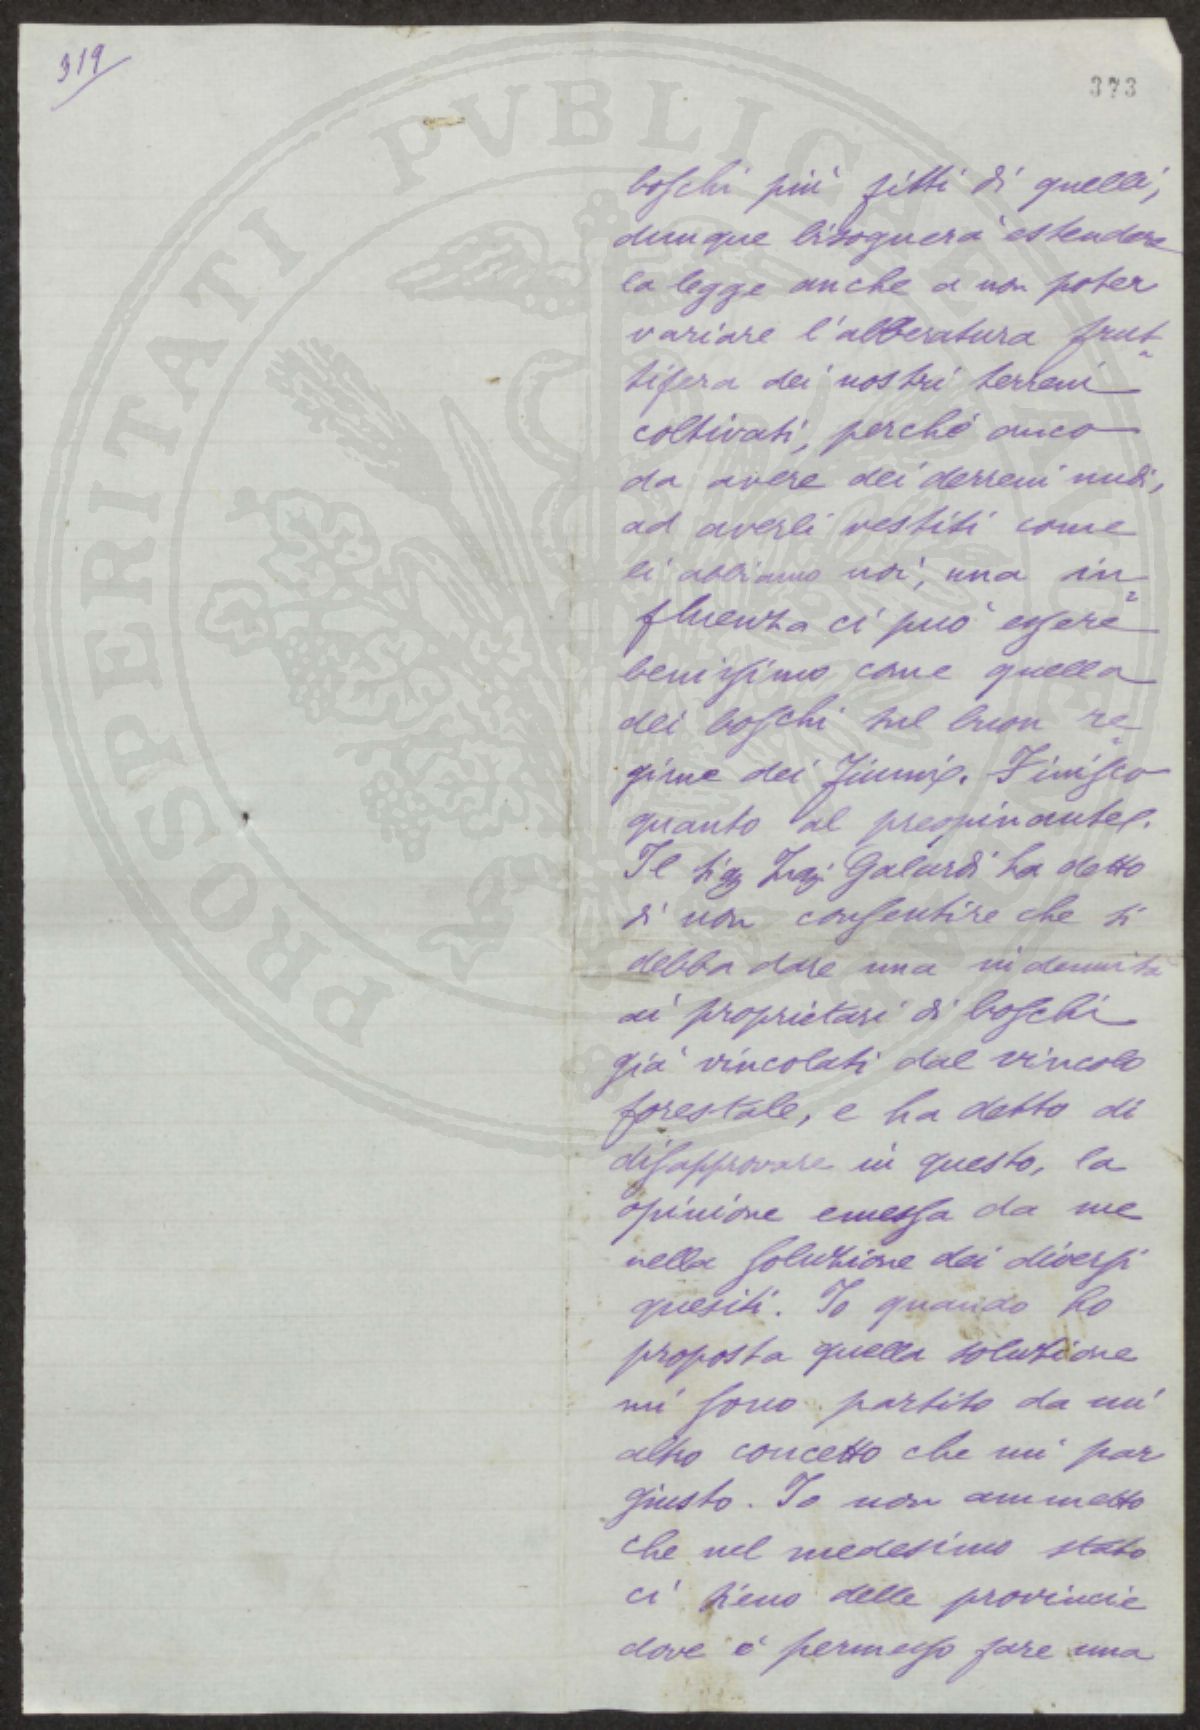 319
373
PROSPERITATI PVBLICAE AVGENDAE
boschi più fitti di quelli,
dunque bisognerà estendere
la legge anche a non poter
variare l'alberatura frut-
tifera dei nostri terreni
coltivati, perché anco
da avere dei derreni nudi,
ad averli vestiti come
li abbiamo noi, una in-
fluenza ci può essere
benissimo come quella
dei boschi sul buon re-
gime dei fiumi. Finisco
quanto al preopinante.
Il Sig Ing. Galardi ha detto
di non consentire che si
debba dare una indennità
ai proprietari di boschi
già vincolati dal vincolo
forestale, e ha detto di
disapprovare in questo, la
opinione emessa da me
nella soluzione dei diversi
quesiti. Io quando ho
proposta quella soluzione
mi sono partito da un'
altro concetto che mi par
giusto. Io non ammetto
che nel medesimo stato
ci sieno delle provincie
dove è permesso fare una